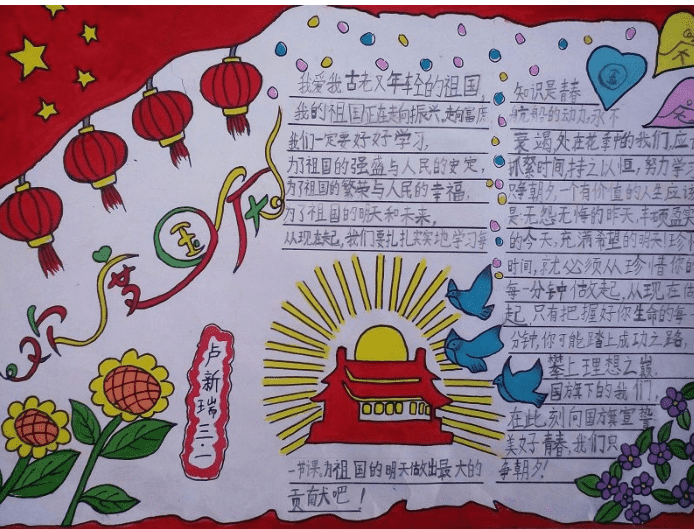 欢度国庆
卢新瑞
三·一
我爱我古老又年轻的祖国,
我的祖国正在走向振兴,走向富庶
我们一定要好好学习,
为了祖国的强盛与人民的安定,
为了祖国的繁荣与人民的幸福,
为了祖国的明天和未来,
从现在起,我们要扎扎实实地学习每
一节课,为祖国的明天做出最大的
贡献吧!
知识是青春
航船的动力,永不
衰竭处在花季中的我们,应
抓紧时间,持之以恒,努力学
争朝夕,一个有价值的人生应
是无怨无悔的昨天,丰硕盈
的今天,充满希望的明天!珍
时间,就必须从珍惜你的
每一分钟做起,从现在
起,只有把握好你生命的每
分钟,你可能踏上成功之路,
攀上理想之巅.
国旗下的我们,
在此刻向国旗宣誓
美好青春,我们只
争朝夕!